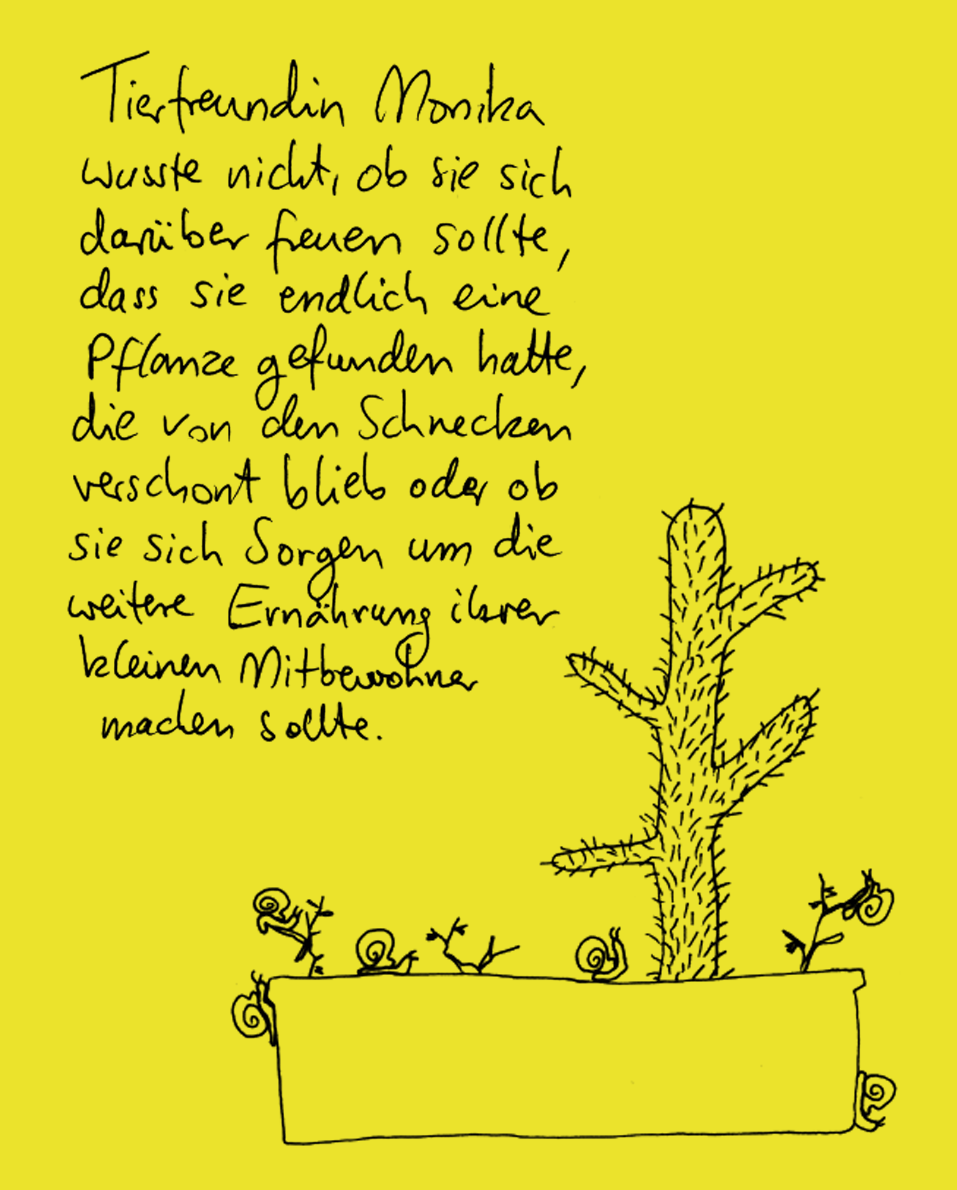 Tierfreundin Monika
wusste nicht, ob sie sich
darüber freuen sollte,
dass sie endlich eine
Pflanze gefunden hatte,
die von den Schnecken
verschont blieb oder ob
sie sich Sorgen um die
weitere Ernährung ihrer
kleinen Mitbewohner
machen sollte.